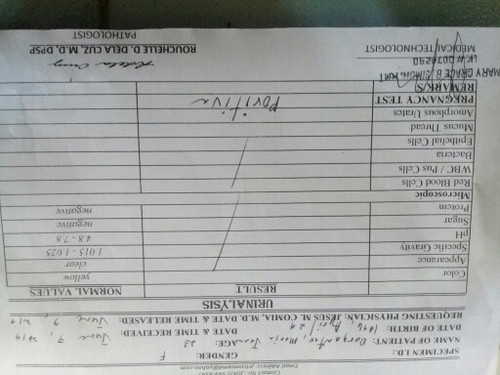 SPECIMEN I.D.: GENDER: F
NAME OF PATIENT: AGE: 23
DATE OF BIRTH: 1996, April 29 DATE & TIME RECEIVED: June 9, 2019
REQUESTING PHYSICIAN: JESUS M. COMIA, M.D. DATE & TIME RELEASED: June 9, 2019
URINALYSIS
RESULT NORMAL VALUES
Color yellow
Appearance clear
Specific Gravity 1.015 - 1.025
pH 4.8 - 7.8
Sugar negative
Protein negative
Microscopic
Red Blood Cells
WBC / Pus Cells
Bacteria
Epithelial Cells
Mucus Thread
Amorphous Urates
PREGNANCY TEST Positive
REMARK/S
MARY GRACE B. SIMON, RMT
MEDICAL TECHNOLOGIST
ROUCHELLE D. DELA CUZ, M.D. DPSP
PATHOLOGIST